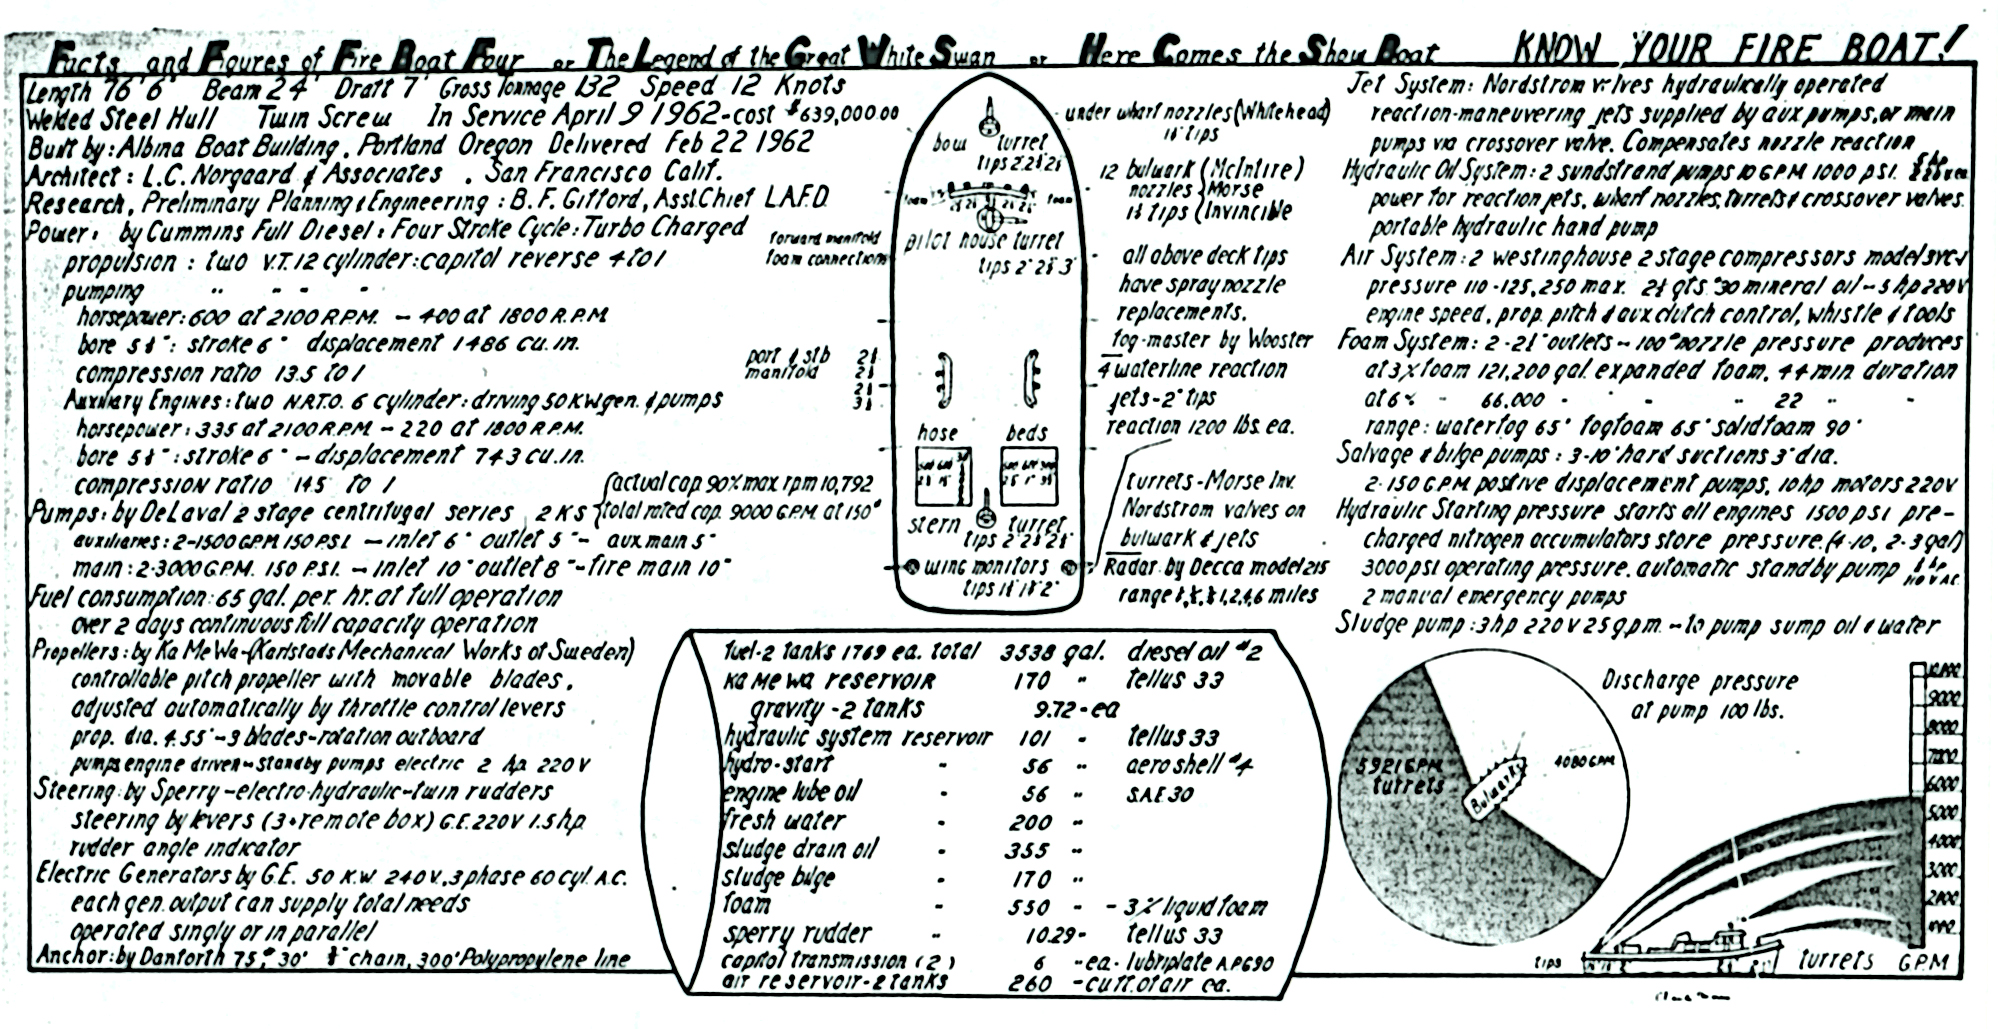 Facts and Figures of Fire Boat Four or The Legend of the Great White Swan or Here Comes the Show Boat KNOW YOUR FIRE BOAT!
Length 76' 6" Beam 24' Draft 7' Gross Tonnage 132 Speed 12 Knots
Welded Steel Hull Twin Screw In Service April 9 1962-cost $639,000.00
Built by: Albina Boat Building, Portland Oregon Delivered Feb 22 1962
Architect: L.C. Norgaard & Associates, San Francisco Calif.
Research, Preliminary Planning & Engineering: B.F. Gifford, Asst. Chief L.A.F.D.
Power: by Cummins Full Diesel: Four Stroke Cycle: Turbo Charged
propulsion: two V.T. 12 cylinder: capitol reverse 4 to 1
pumping " " " "
horsepower: 600 at 2100 R.P.M. - 400 at 1800 R.P.M
bore 5 ": stroke 6" displacement 1486 cu. in.
compression ratio 13.5 to 1
Auxiliary Engines: two N.R.T.O. 6 cylinder: driving 50 KW gen. & pumps
horsepower: 335 at 2100 R.P.M. - 220 at 1800 R.P.M.
bore 5 ": stroke 6" - displacement 743 cu. in.
compression ratio 14.5 to 1
Pumps: by DeLaval 2 stage centrifugal series 2 KS
actual cap. 90% max rpm 10,792
total rated cap. 9000 G.P.M. at 150#
auxiliaries: 2-1500 GPM 150 PSI - inlet 6" outlet 5" - aux main 5"
main: 2-3000 G.P.M. 150 P.S.I. - inlet 10" outlet 8" - fire main 10"
Fuel consumption: 65 gal. per. hr. at full operation
over 2 days continuous full capacity operation
Propellers: by Ka Me Wa-(Karlstads Mechanical Works of Sweden)
controllable pitch propeller with movable blades,
adjusted automatically by throttle control levers
prop. dia. 4.55' - 3 blades - rotation outboard
pumps engine driven - standby pumps electric 2 hp 220 V
Steering: by Sperry - electro-hydraulic - twin rudders
steering by levers (3 + remote box) G.E. 220 V 1.5 hp
rudder angle indicator
Electric Generators by G.E. 50 K.W. 240 V, 3 phase 60 Cyl A.C.
each gen. output can supply total needs
operated singly or in parallel
Anchor: by Danforth 75# 30' chain, 300' Polypropylene line
bow turret
tips 2"
foam foam
pilot house turret
tips 2" 3"
forward manifold
foam connections
port & stb
manifold
hose beds
stern turret
tips 2"
wing monitors
tips 2"
under wharf nozzles (Whitehead)
tips
12 bulwark (McIntire)
nozzles Morse
tips Invincible
all above deck tips
have spray nozzle
replacements.
fog-master by Wooster
4 waterline reaction
jets - 2" tips
reaction 1200 lbs. ea.
turrets - Morse Inv.
Nordstrom valves on
bulwark & jets
Radar by Decca model 215
range 1,2,4,6 miles
Jet System: Nordstrom valves hydraulically operated
reaction-maneuvering jets supplied by aux pumps, or main
pumps via crossover valve. Compensates nozzle reaction
Hydraulic Oil System: 2 sundstrand pumps 10 GPM 1000 psi.
power for reaction jets, wharf nozzles, turrets & crossover valves.
portable hydraulic hand pump
Air System: 2 westinghouse 2 stage compressors model 3YC-1
pressure 110-125, 250 max. qts "30 mineral oil - 5 hp 220V
engine speed, prop. pitch & aux clutch control, whistle & tools
Foam System: 2 - outlets - 100# nozzle pressure produces
at 3% foam 121,200 gal. expanded foam, 44 min duration
at 6% " 66,000 " " " " 22 " "
range: waterfog 65' fogfoam 65' solid foam 90'
Salvage & bilge pumps: 3-10' hard suctions 3" dia.
2-150 G.P.M. positive displacement pumps, 10 hp motors 220V
Hydraulic Starting pressure starts all engines 1500 psi pre-
charged nitrogen accumulators store pressure. (4-10, 2-3 gal)
3000 psi operating pressure. automatic standby pump
2 manual emergency pumps
Sludge pump: 3 hp 220 V 25 g.p.m. - to pump sump oil & water
fuel - 2 tanks 1769 ea. total 3538 gal. diesel oil #2
Ka Me Wa reservoir 170 " tellus 33
gravity - 2 tanks 9.72 - ea
hydraulic system reservoir 101 " tellus 33
hydro-start " 56 " aero shell #4
engine lube oil " 56 " S.A.E 30
fresh water " 200 "
sludge drain oil " 355 "
sludge bilge " 170 "
foam " 550 " - 3% liquid foam
sperry rudder " 10.29 " tellus 33
capitol transmission (2) 6 " ea - lubriplate A.P.G 90
air reservoir - 2 tanks 260 - cu ft. of air ea.
Discharge pressure
at pump 100 lbs.
5921 GPM
turrets
Bulwarks
4080 GPM
10,000
9000
8000
7000
6000
5000
4000
3000
2000
1000
tips turrets G.P.M